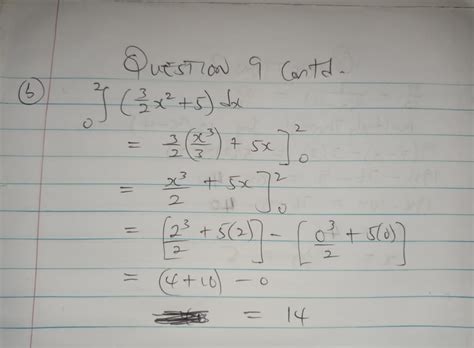 QUESTION 9 Contd.
(b) ∫₀² (3/2 x² + 5) dx
= 3/2 (x³/3) + 5x ]₀²
= x³/2 + 5x ]₀²
= [2³/2 + 5(2)] - [0³/2 + 5(0)]
= (4 + 10) - 0
= 14